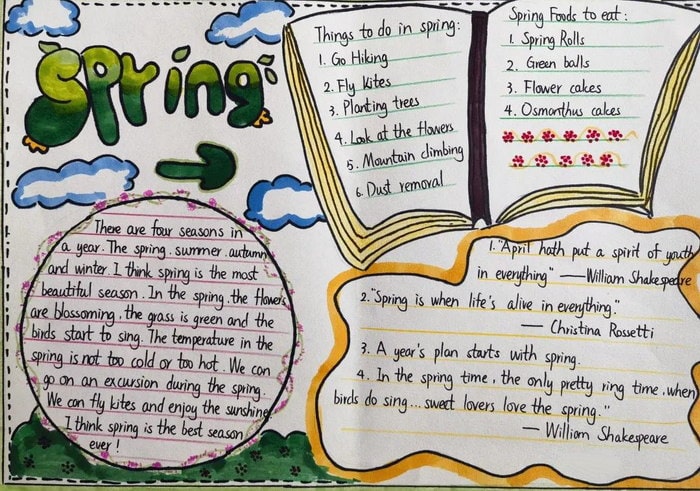 Spring
There are four seasons in
a year. The spring. summer. autumn
and winter. I think spring is the most
beautiful season. In the spring. the flowers
are blossoming. the grass is green and the
birds start to sing. The temperature in the
spring is not too cold or too hot. We can
go on an excursion during the spring.
We can fly kites and enjoy the sunshine
I think spring is the best season
ever!
Things to do in spring:
1. Go Hiking
2. Fly kites
3. Planting trees
4. Look at the flowers
5. Mountain climbing
6. Dust removal
Spring Foods to eat:
1. Spring Rolls
2. Green balls
3. Flower cakes
4. Osmanthus cakes
1. "April hath put a spirit of youth
in everything" — William Shakespeare
2. "Spring is when life's alive in everything."
— Christina Rossetti
3. A year's plan starts with spring.
4. In the spring time, the only pretty ring time. when
birds do sing... sweet lovers love the spring."
— William Shakespeare